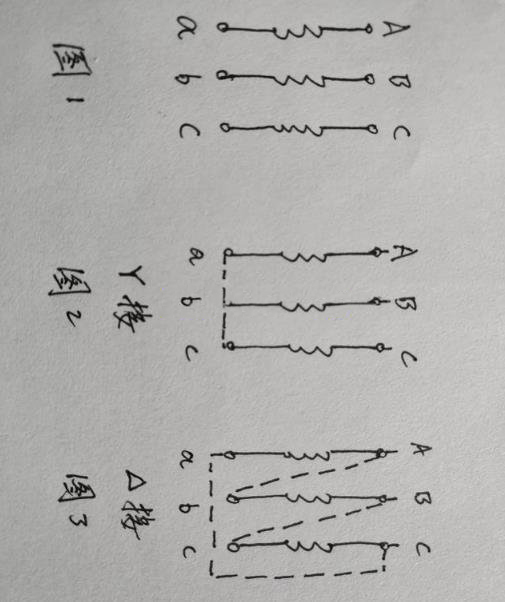 A B C
a b c
图1
A B C
a b c
Y接
图2
A B C
a b c
△接
图3